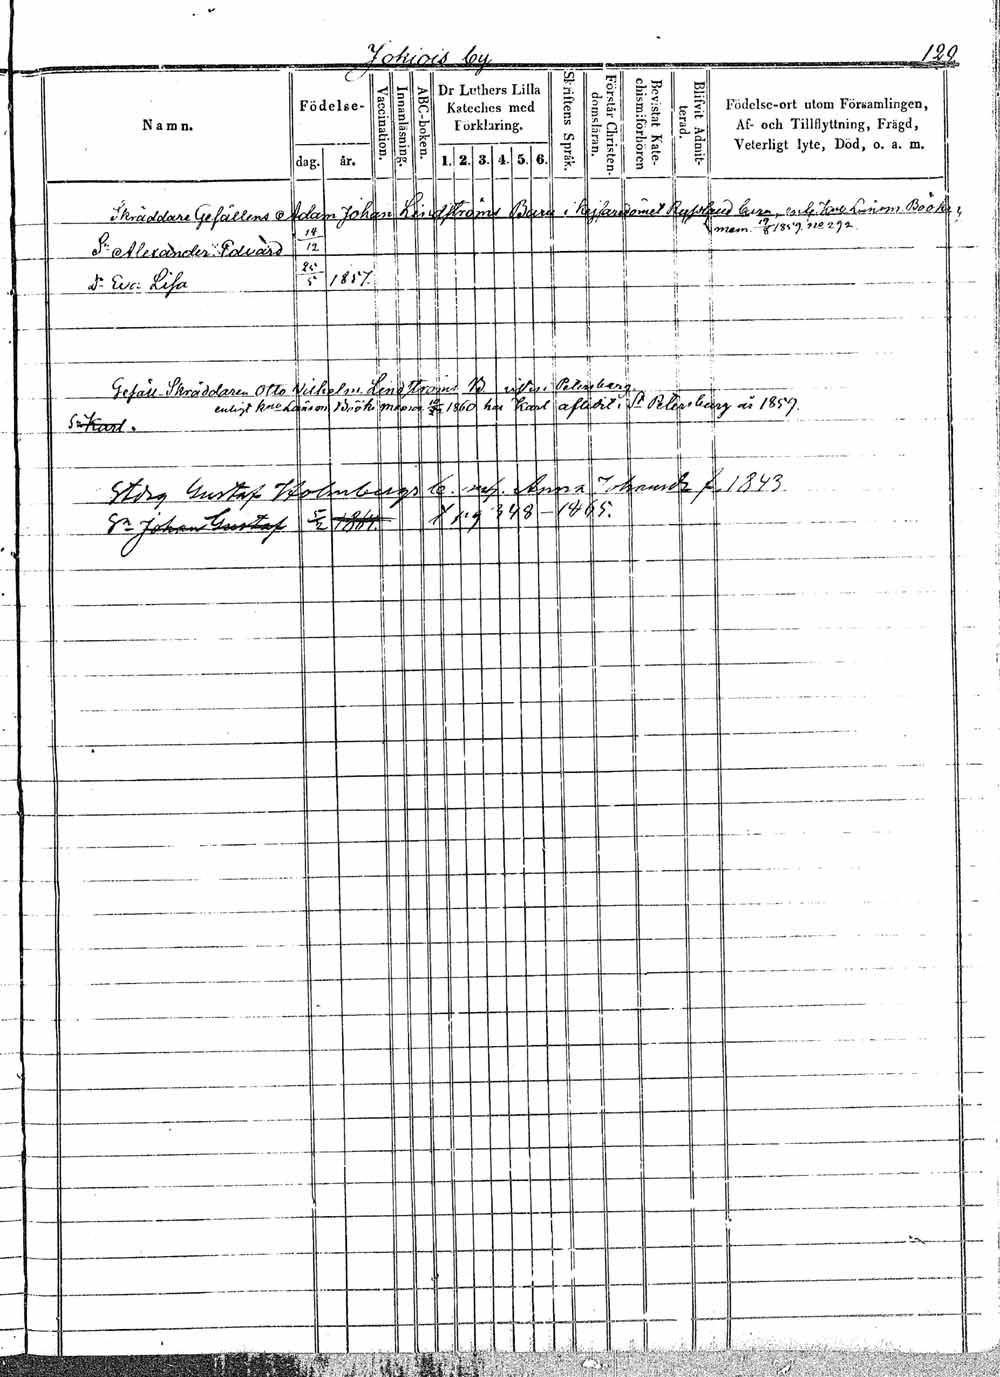 Jokiois by 129
Namn. Födelse- dag. år. Vaccination. Innanläsning. ABC-boken. Dr Luthers Lilla Kateches med Förklaring. 1. 2. 3. 4. 5. 6. Skriftens Språk. Förstår Christendomsläran. Bevistat Katechismiförhören Blifvit Admitterad. Födelse-ort utom Församlingen, Af- och Tillflyttning, Frägd, Veterligt lyte, Död, o. a. m.
Skräddare Gesällens Adam Johan Lindströms Barn i Kejsaredömet Ryssland
mem. 1859. no 292.
Sn Alexander Edvard 14/12
Dr Eva Lisa 25/5 1857.
Gesäll Skräddaren Otto Vilhelm Lindströms B Petersburg
enligt 1860 har Karl aflidit i St Petersburg år 1859.
Sn Karl.
Gustaf Holmbergs Anna f. 1843
Sn Johan Gustaf 5/2 1864. pg 348 - 1865.